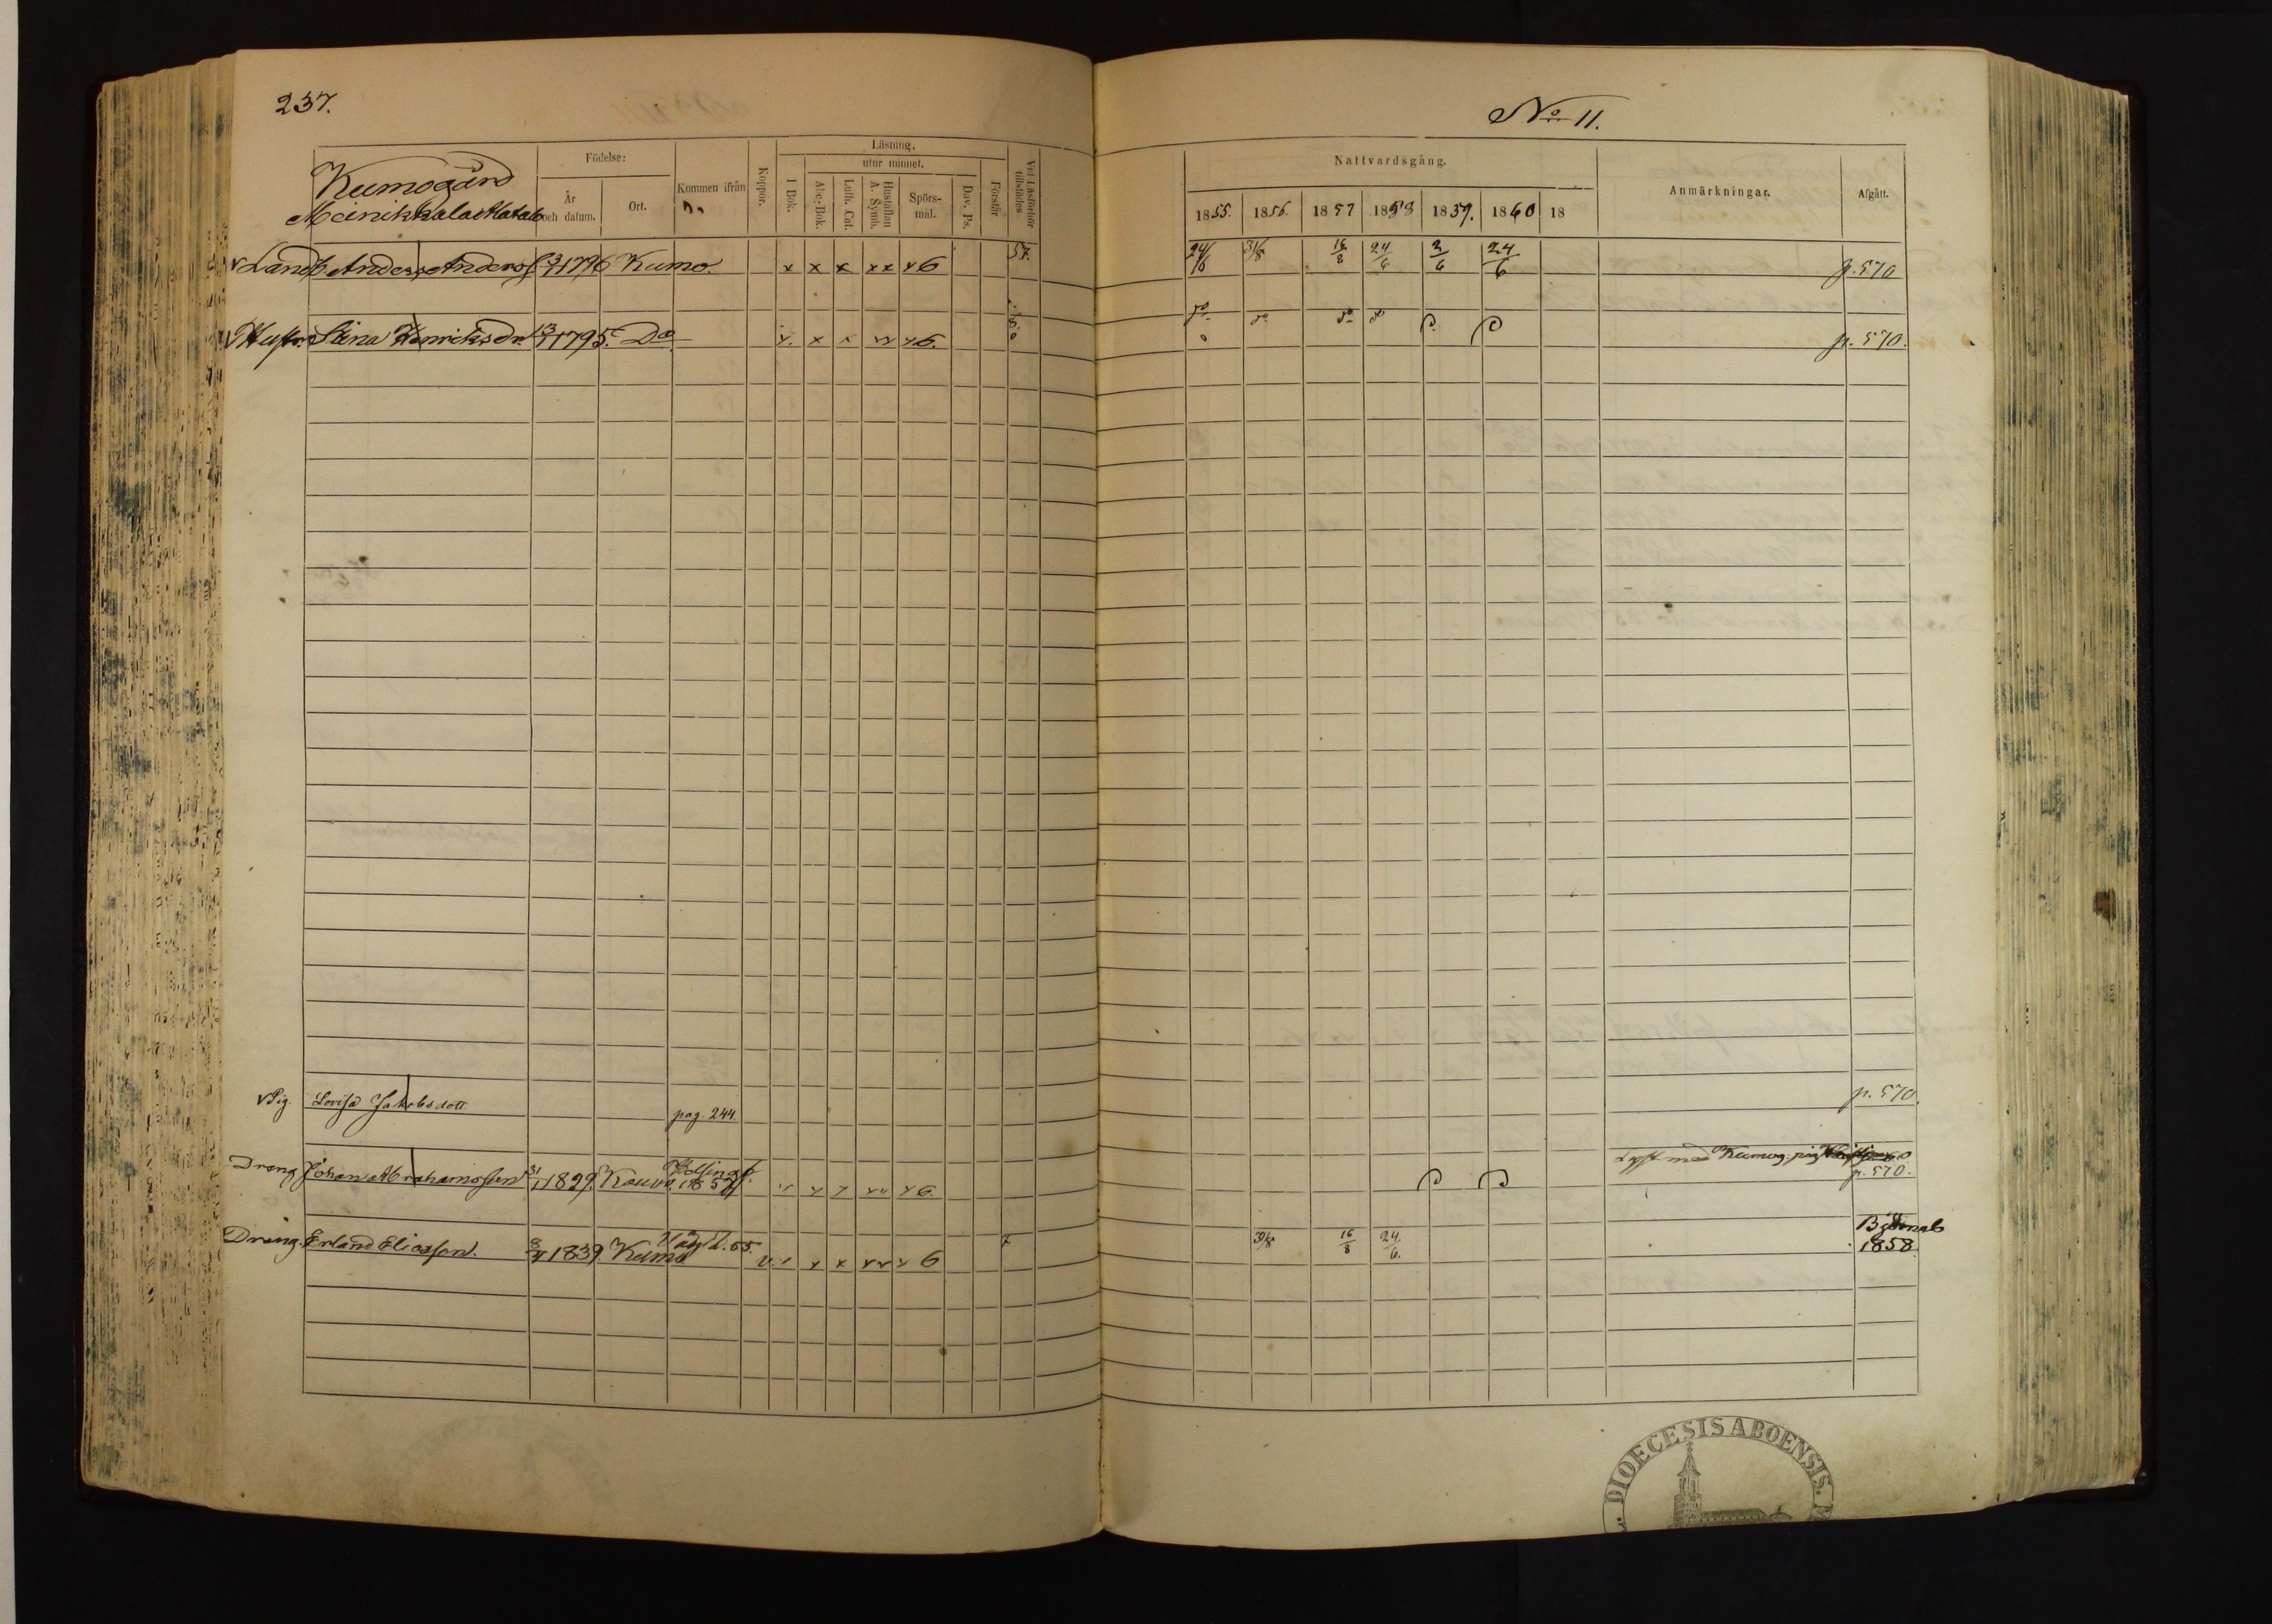 237.
No 11.
Kumogård
Födelse:
År och datum.
Ort.
Kommen ifrån
Koppor.
Läsning.
I Bok.
utur minnet.
Abc-Bok.
Luth. Cat.
Hustaflan A. Symb.
Spörsmål.
Dav. Ps.
Förstår
Vid Läsförhör tillstädes
Nattvardsgång.
1855. 1856. 1857 1858 1859. 1860 18
Anmärkningar.
Afgått.
Anders Anderss 1796 Kumo. x x x xx x6 57. 24/6 31/8 16/8 24/6 2/6 24/6 p. 570
Hustr. Stina Henriksdr. 13/7 1795. Do x x x xx x6. p. 570.
v Pig. Lovisa Jakobsdott. pag. 244. p. 570.
Dreng Johan Abrahamsson 1829. 1857 x6. p. 570.
Dreng. Erland Eliasson. 1839. Kumo 55. x x xx x 6 31/8 16/8 24/6. 1858.
DIOECESIS ABOENSIS.